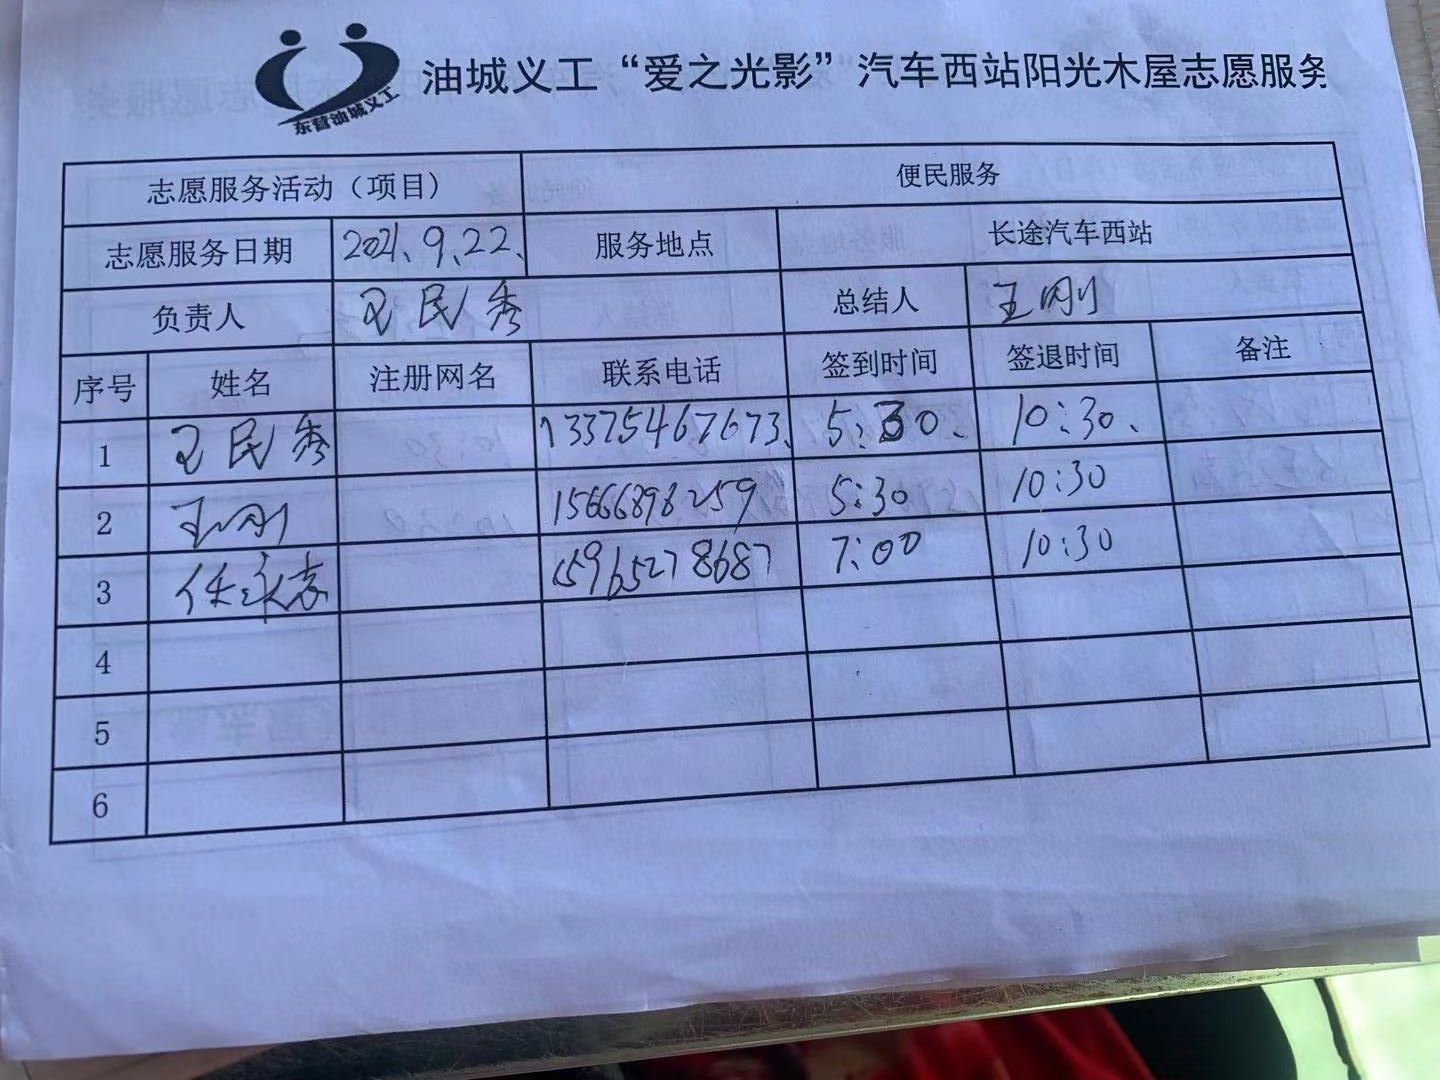 东营油城义工
油城义工“爱之光影”汽车西站阳光木屋志愿服务
志愿服务活动（项目） 便民服务
志愿服务日期 2021、9、22、 服务地点 长途汽车西站
负责人 王民秀 总结人 王刚
序号 姓名 注册网名 联系电话 签到时间 签退时间 备注
1 王民秀 13375467673、 5:30、 10:30、
2 王刚 15666898259 5:30 10:30
3 任永志 15965278687 7:00 10:30
4
5
6